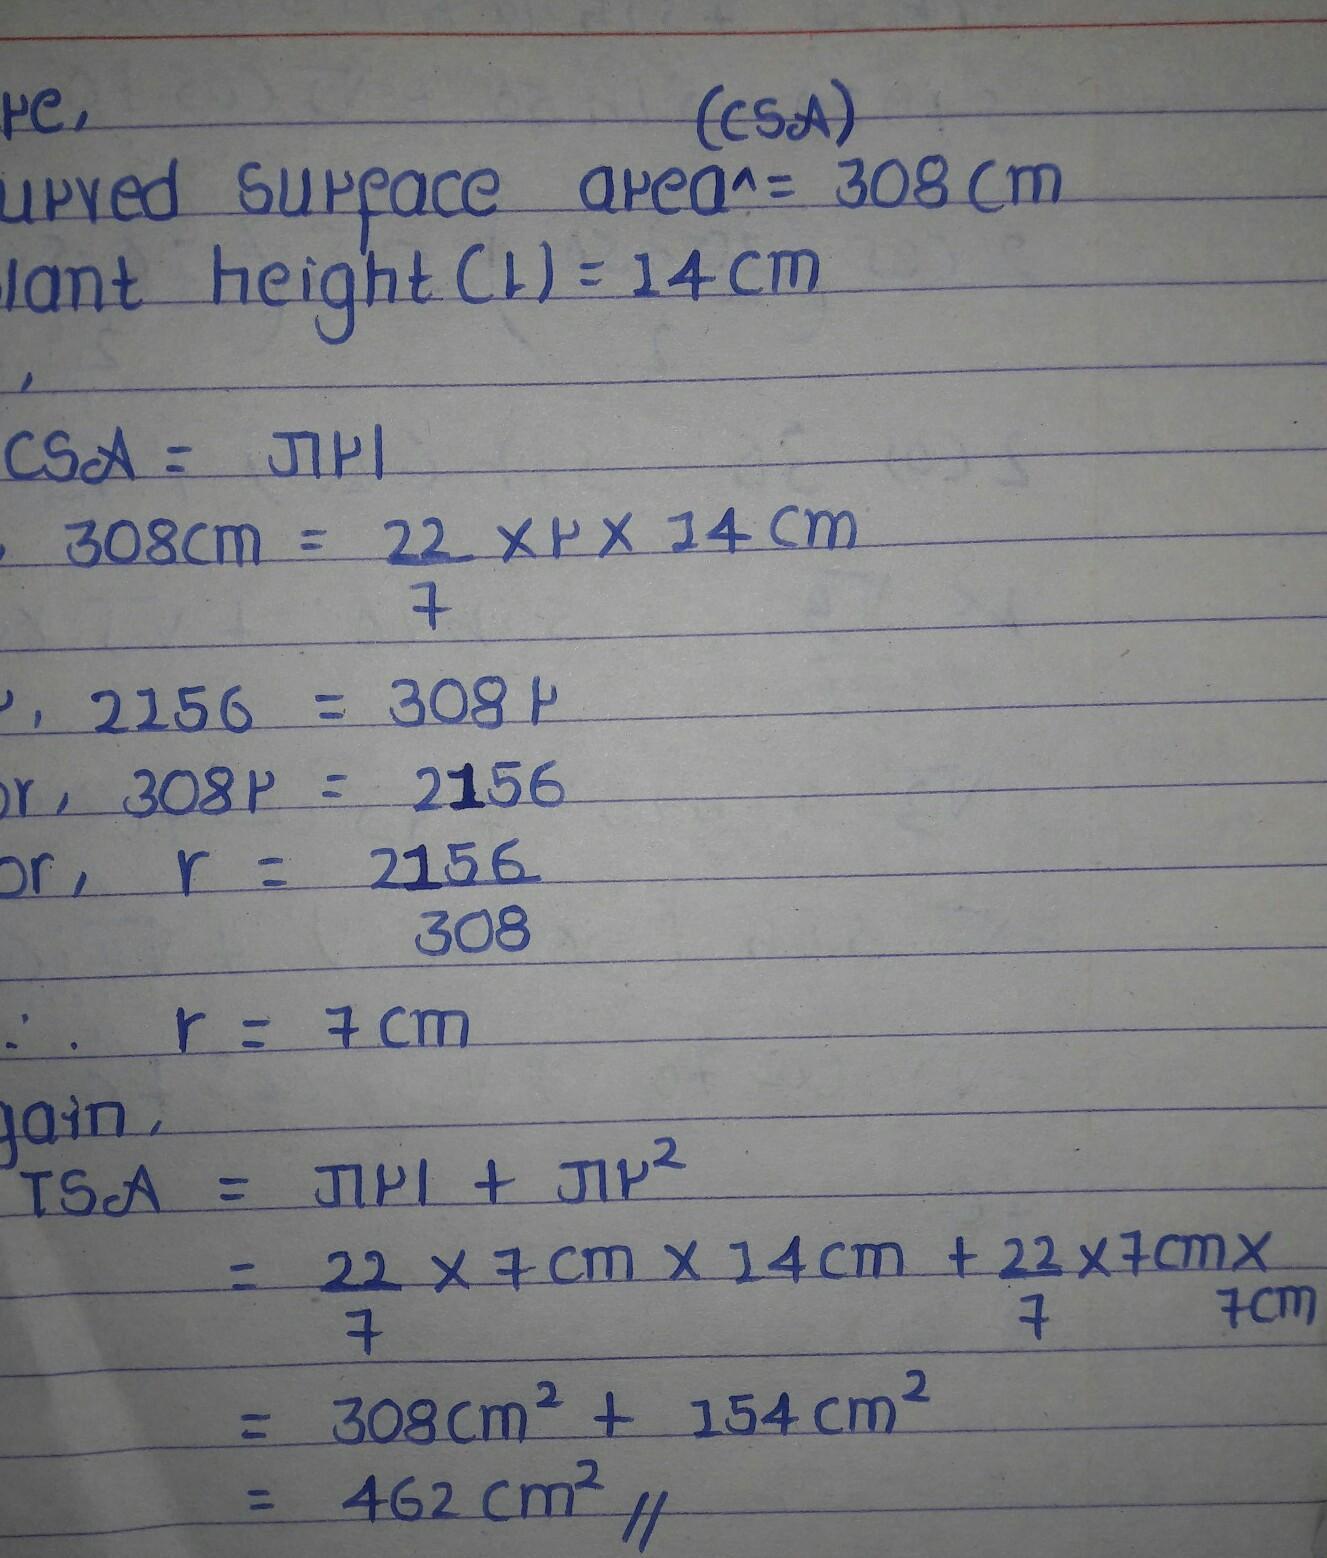 re,
(CSA)
urved surface area^ = 308 cm
lant height (l) = 14 cm
,
CSA = πrl
, 308cm = 22 × r × 14 cm
7
r, 2156 = 308 r
or, 308r = 2156
or, r = 2156
308
∴ r = 7 cm
gain,
TSA = πrl + πr²
= 22 × 7 cm × 14 cm + 22 × 7cm ×
7 7 7cm
= 308 cm² + 154 cm²
= 462 cm² //